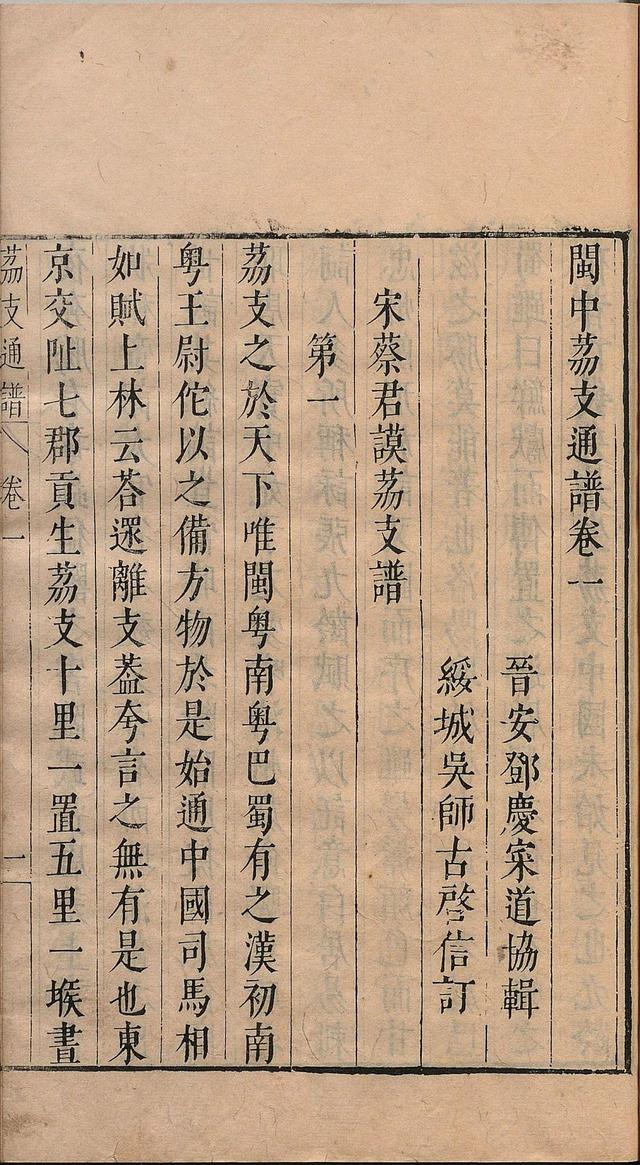 閩中荔支通譜卷一
晉安鄧慶寀道協輯
綏城吳師古啓信訂
宋蔡君謨荔支譜
第一
荔支之於天下唯閩粵南粵巴蜀有之漢初南
粵王尉佗以之備方物於是始通中國司馬相
如賦上林云荅遝離支葢夸言之無有是也東
京交阯七郡貢生荔支十里一置五里一堠晝
荔支通譜 卷一 一